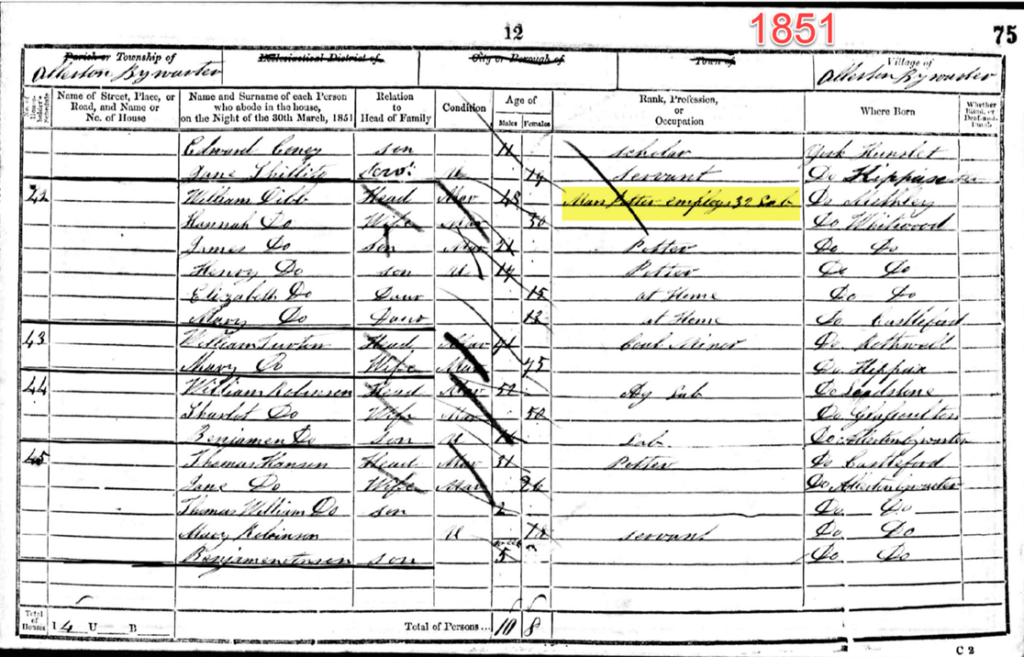 12 1851 75
Parish or Township of Ecclesiastical District of City or Borough of Town of Village of
Allerton Bywater Allerton Bywater
Name of Street, Place, or Road, and Name or No. of House Name and Surname of each Person who abode in the house, on the Night of the 30th March, 1851 Relation to Head of Family Condition Age of Males Females Rank, Profession, or Occupation Where Born Whether Blind, or Deaf-and-Dumb
Edward son 11 scholar York Hunslet
Jane Serv. U 14 servant Do Kippax
William Gibb Head Mar 45 Man Potter employs 32 Lab Do
Hannah Do Wife Mar 50 Do Whitwood
James Do son Mar 21 Potter Do Do
Henry Do son U 19 Potter Do Do
Elizabeth Do Daur 15 at Home Do Do
Mary Do Daur 12 at Home Do Castleford
43 William Head Mar 71 Coal Miner Do Rothwell
Mary Do Wife Mar 75 Do Kippax
44 William Robinson Head Mar 52 Ag Lab Do
Sharlot Do Wife Mar 50 Do
Benjamen Do son U Lab Do Allerton bywater
45 Thomas Hanson Head Mar 31 Potter Do Castleford
Jane Do Wife Mar 26 Do Allerton bywater
Thomas William Do son 2 Do Do
Mary Robinson U servant Do Do
Benjamen son 5 Do Do
Total of Houses 1 4 U B Total of Persons... 10 8
C 2